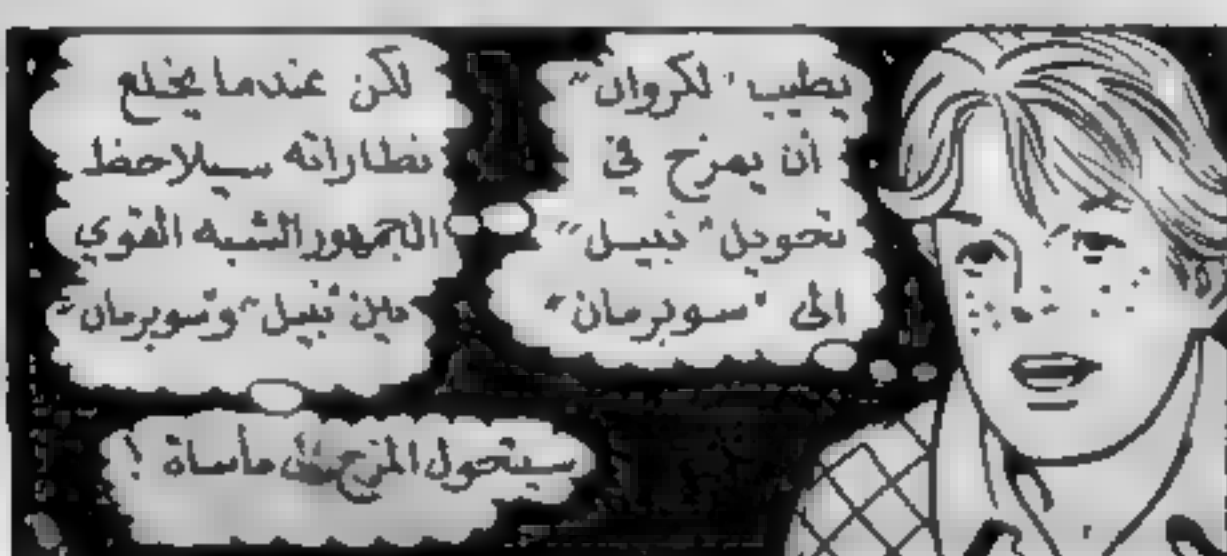 يطيب "لكروان"
أن يمزح في
تحويل "نبيل"
الى "سوبرمان"
لكن عندما يخلع
نظاراته سيلاحظ
الجمهور الشبه القوي
بين "نبيل" و"سوبرمان"
سيتحول المزح الى مأساة !